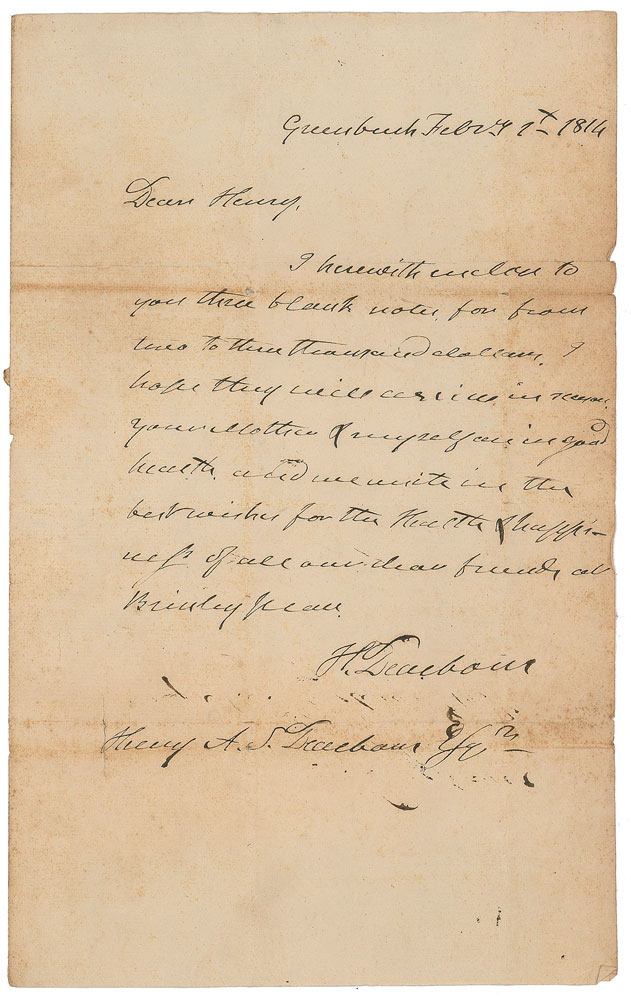 Greenbush Febry 1st 1814
Dear Henry,
I herewith inclose to
you three blank notes, for from
two to three thousand dollars. I
hope they will arrive in season.
Your Mother & myself are in good
health, and we unite in the
best wishes for the Health & happi-
ness of all our dear friends at
Brinley place.
H. Dearborn
Henry A. S. Dearborn Esqr